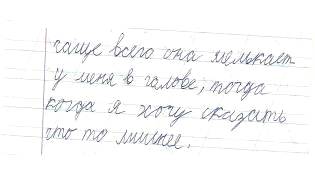 чаще всего она мелькает
у меня в галове, тогда
когда я хочу сказать
что то лишнее.